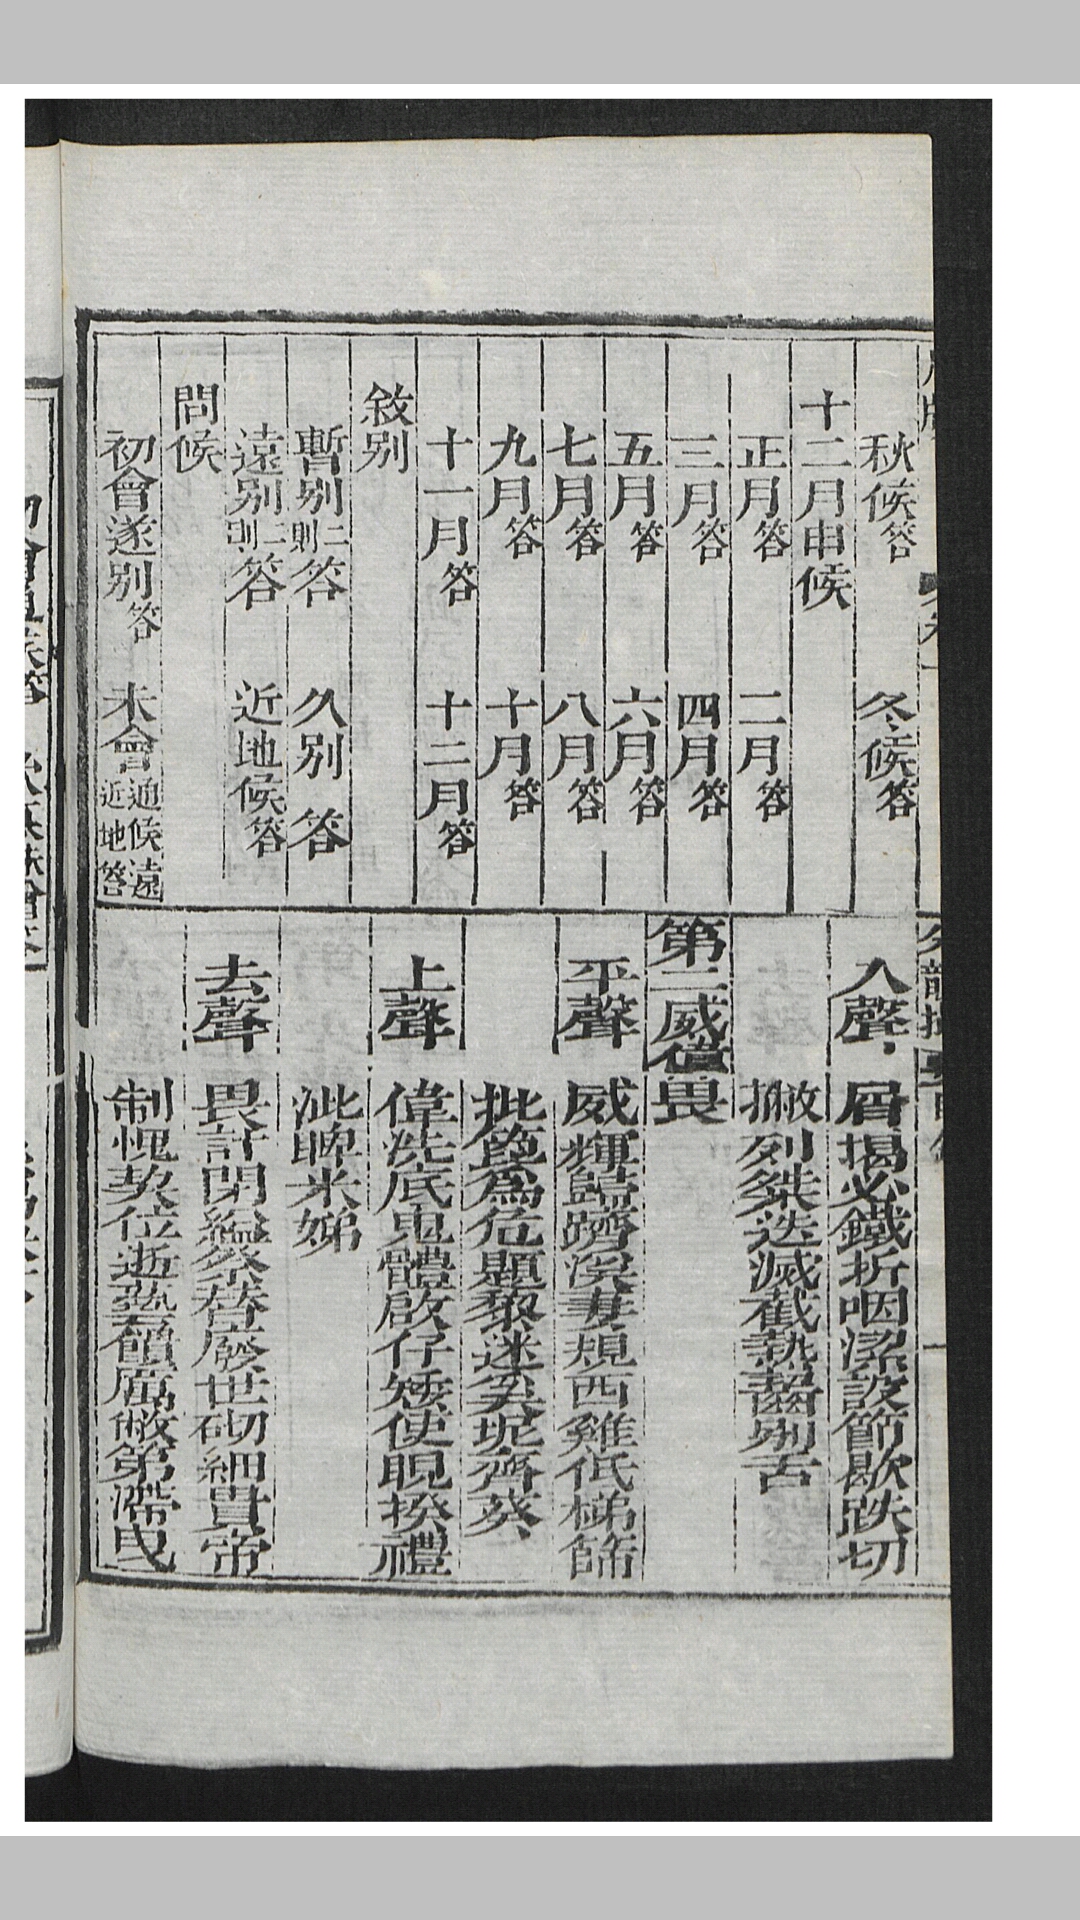 秋候答 冬候答
十二月申候
正月答 二月答
三月答 四月答
五月答 六月答
七月答 八月答
九月答 十月答
十一月答 十二月答
敘别
暫别二則答 久别答
遠别二則答 近地候答
問候
初會遂别答 未會通候遠近地答
入聲 屑揭必鐵折咽潔設節歇跌切
撇列桀迭滅截熱齧别舌
第二威偉畏
平聲 威輝歸躋溪妻規西雞低梯篩
批蓖爲危題黎迷奚坭齊葵
上聲 偉洗底鬼體啟仔矮使睨揆禮
泚睥米娣
去聲 畏計閉繼祭替廢世砌細貴帝
制愧契位逝藝饋厲敝第滯曳